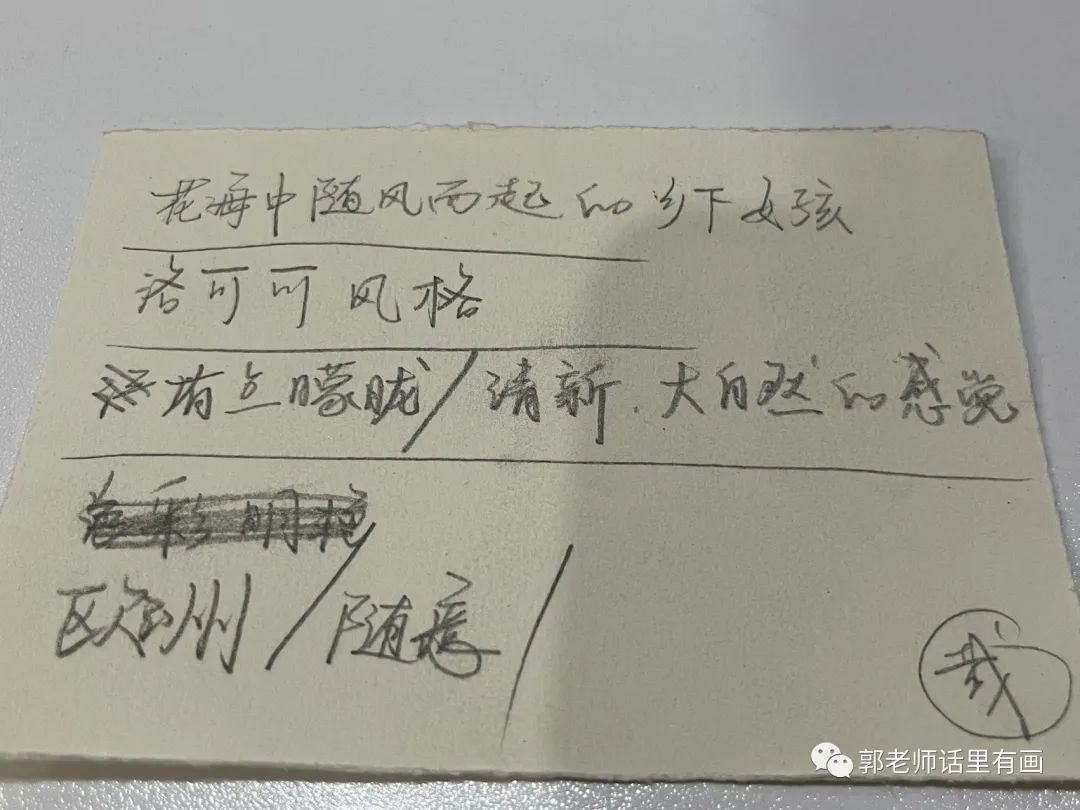 花海中随风而起的乡下女孩
洛可可风格
有点朦胧/清新.大自然的感觉
色彩明艳/
欧洲/随意/
郭老师话里有画